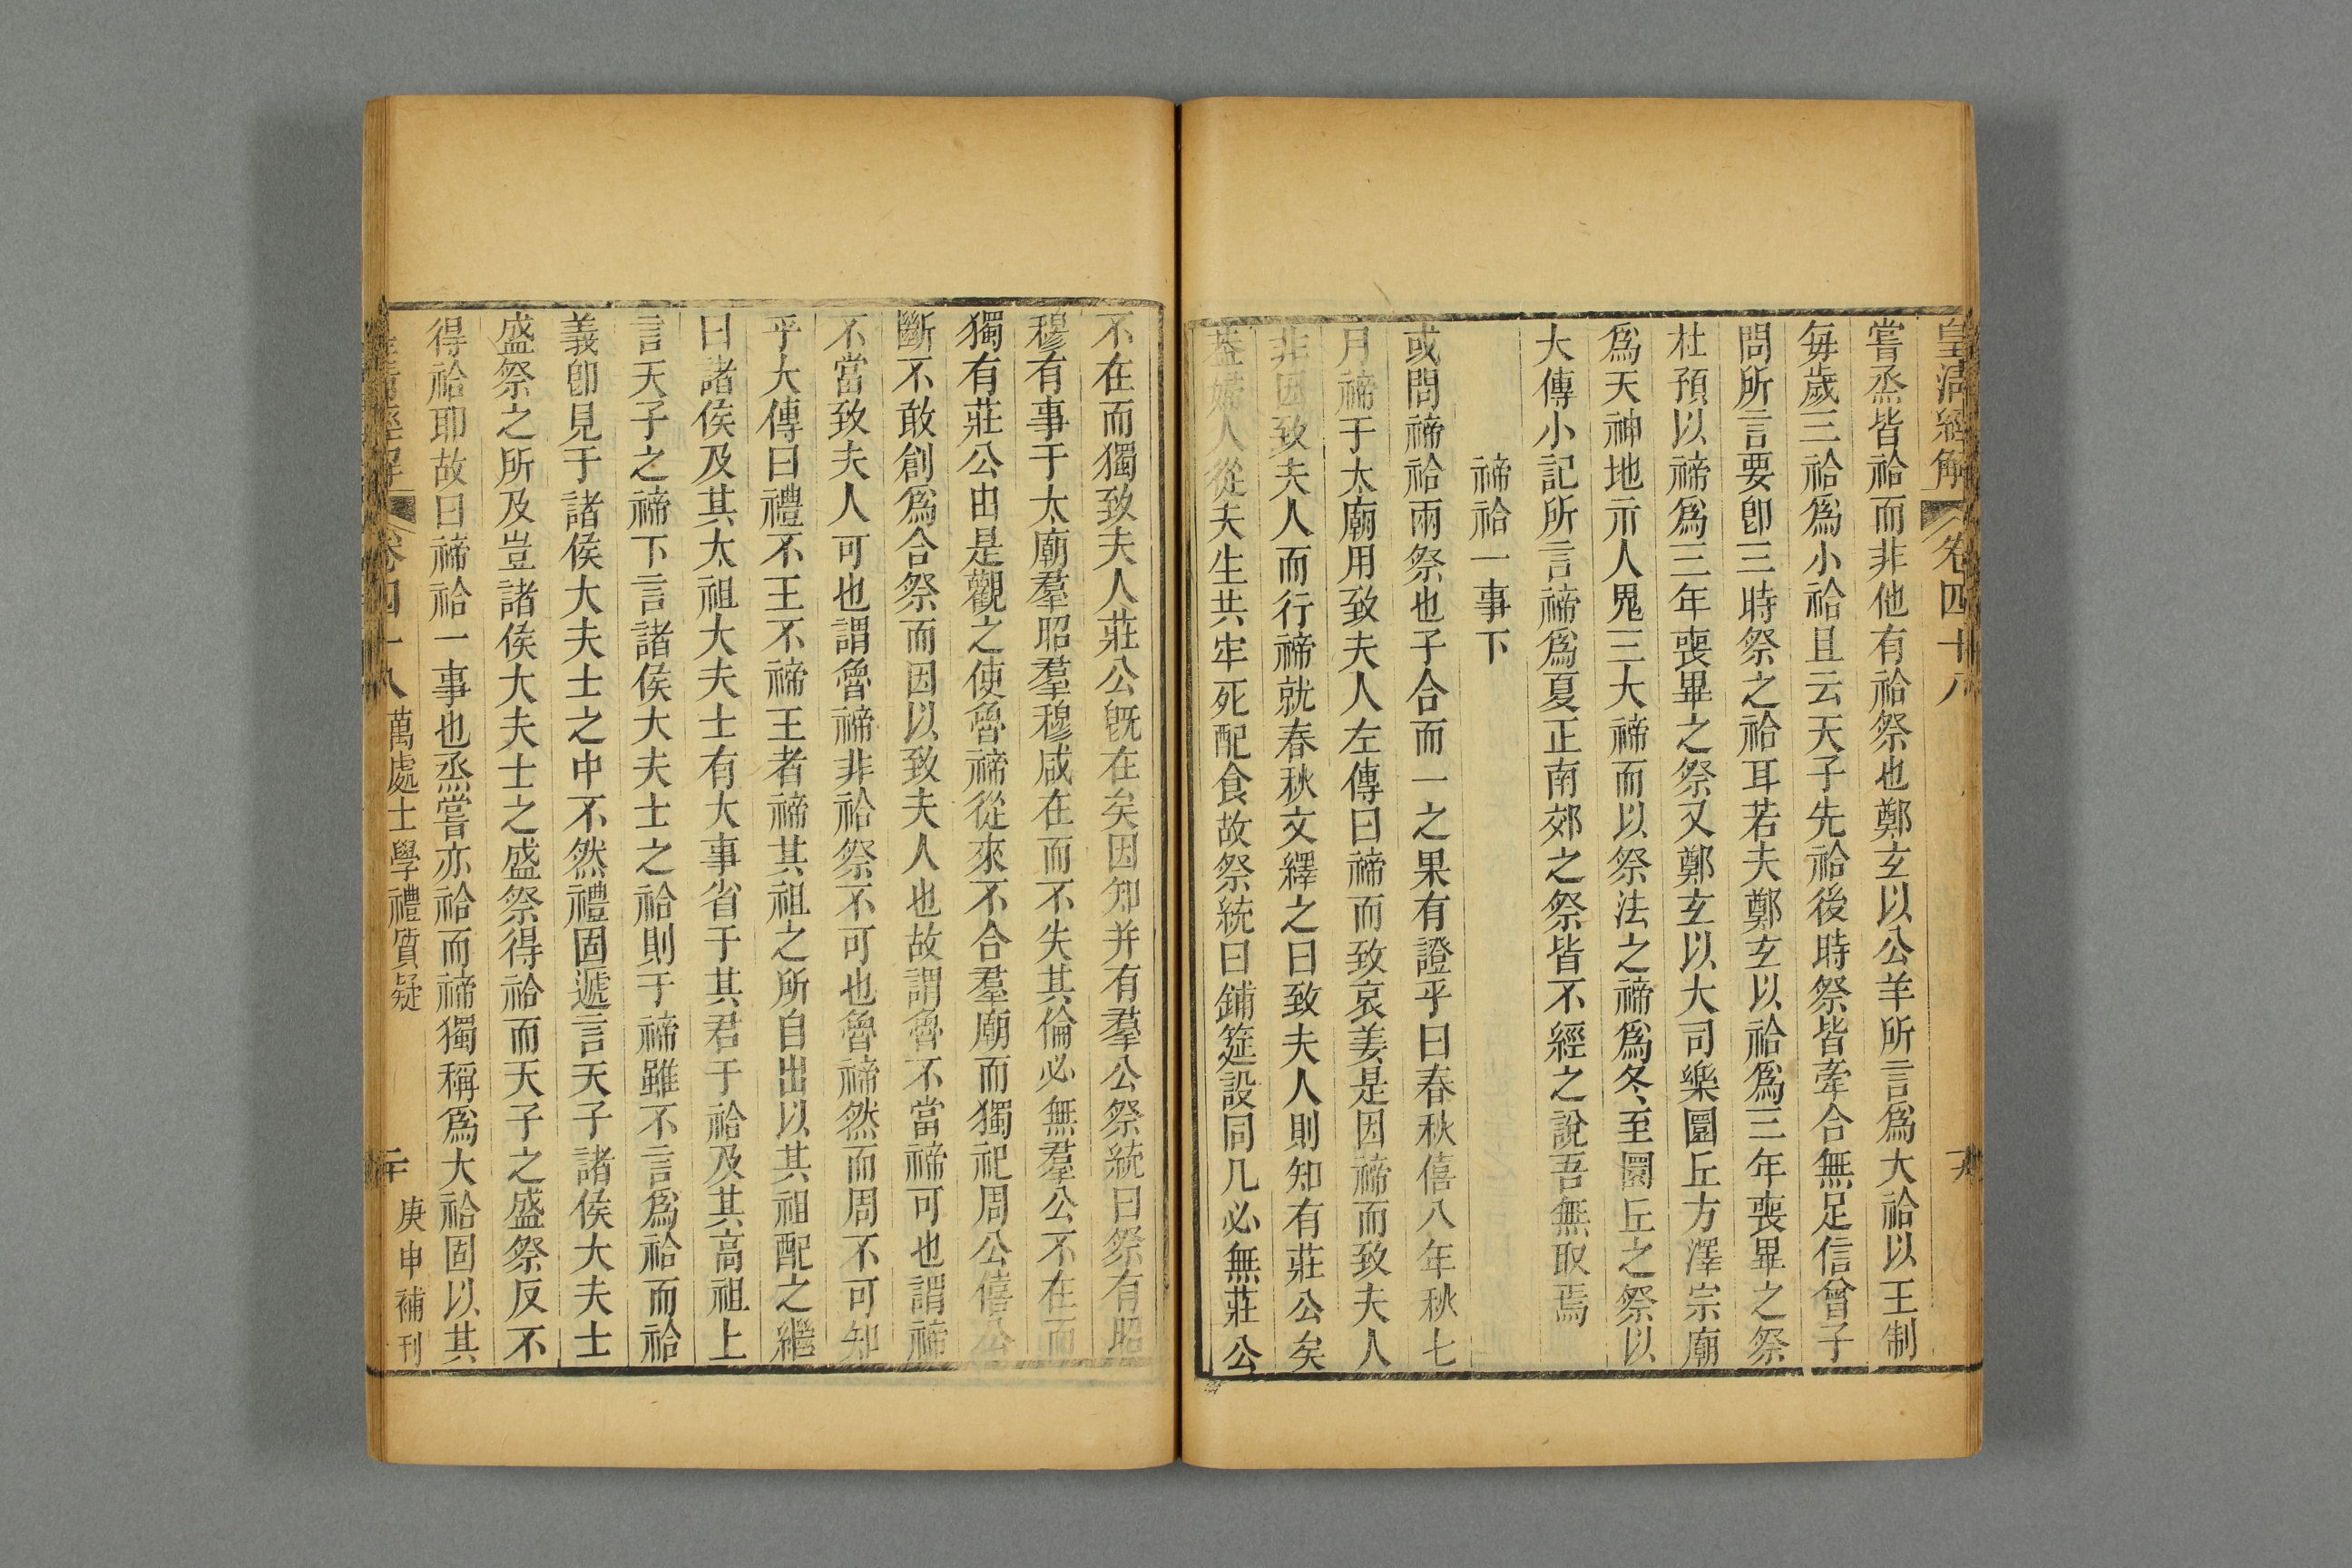 皇清經解 卷四十八
嘗烝皆祫而非他有祫祭也鄭玄以公羊所言爲大祫以王制
每歲三祫爲小祫且云天子先祫後時祭皆牽合無足信曾子
問所言要卽三時祭之祫耳若夫鄭玄以祫爲三年喪畢之祭
杜預以禘爲三年喪畢之祭又鄭玄以大司樂圜丘方澤宗廟
爲天神地示人鬼三大禘而以祭法之禘爲冬至圜丘之祭以
大傳小記所言禘爲夏正南郊之祭皆不經之說吾無取焉
禘祫一事下
或問禘祫兩祭也子合而一之果有證乎曰春秋僖八年秋七
月禘于太廟用致夫人左傳曰禘而致哀姜是因禘而致夫人
非因致夫人而行禘就春秋文繹之曰致夫人則知有莊公矣
葢婦人從夫生共牢死配食故祭統曰鋪筵設同几必無莊公
不在而獨致夫人莊公旣在矣因知并有羣公祭統曰祭有昭
穆有事于太廟羣昭羣穆咸在而不失其倫必無羣公不在而
獨有莊公由是觀之使魯禘從來不合羣廟而獨祀周公僖公
斷不敢創爲合祭而因以致夫人也故謂魯不當禘可也謂禘
不當致夫人可也謂魯禘非祫祭不可也魯禘然而周不可知
乎大傳曰禮不王不禘王者禘其祖之所自出以其祖配之繼
曰諸侯及其太祖大夫士有大事省于其君于祫及其高祖上
言天子之禘下言諸侯大夫士之祫則于禘雖不言爲祫而祫
義卽見于諸侯大夫士之中不然禮固遞言天子諸侯大夫士
盛祭之所及豈諸侯大夫士之盛祭得祫而天子之盛祭反不
得祫耶故曰禘祫一事也烝嘗亦祫而禘獨稱爲大祫固以其
皇清經解 卷四十八 萬處士學禮質疑 二十 庚申補刊